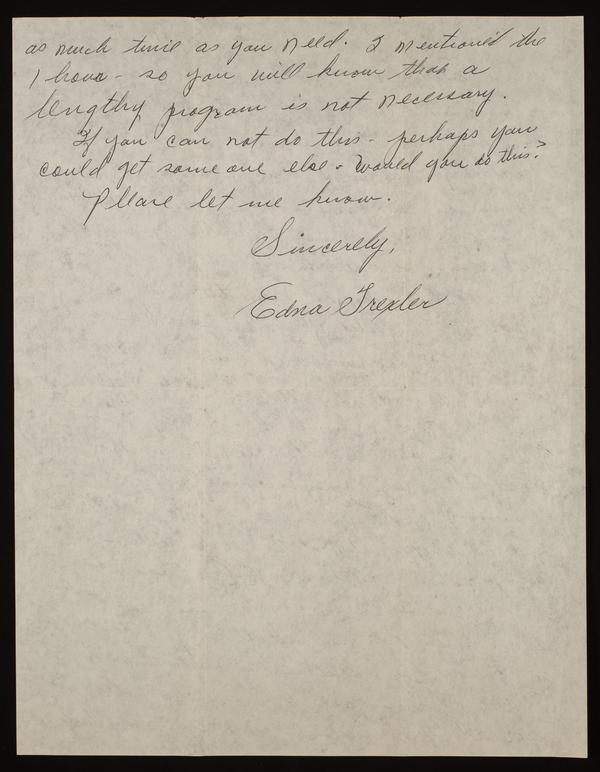 as much time as you need. I mentioned the
1 hour - so you will know that a
lengthy program is not necessary.
If you can not do this - perhaps you
could get some one else - Would you do this?
Please let me know.
Sincerely,
Edna Trexler